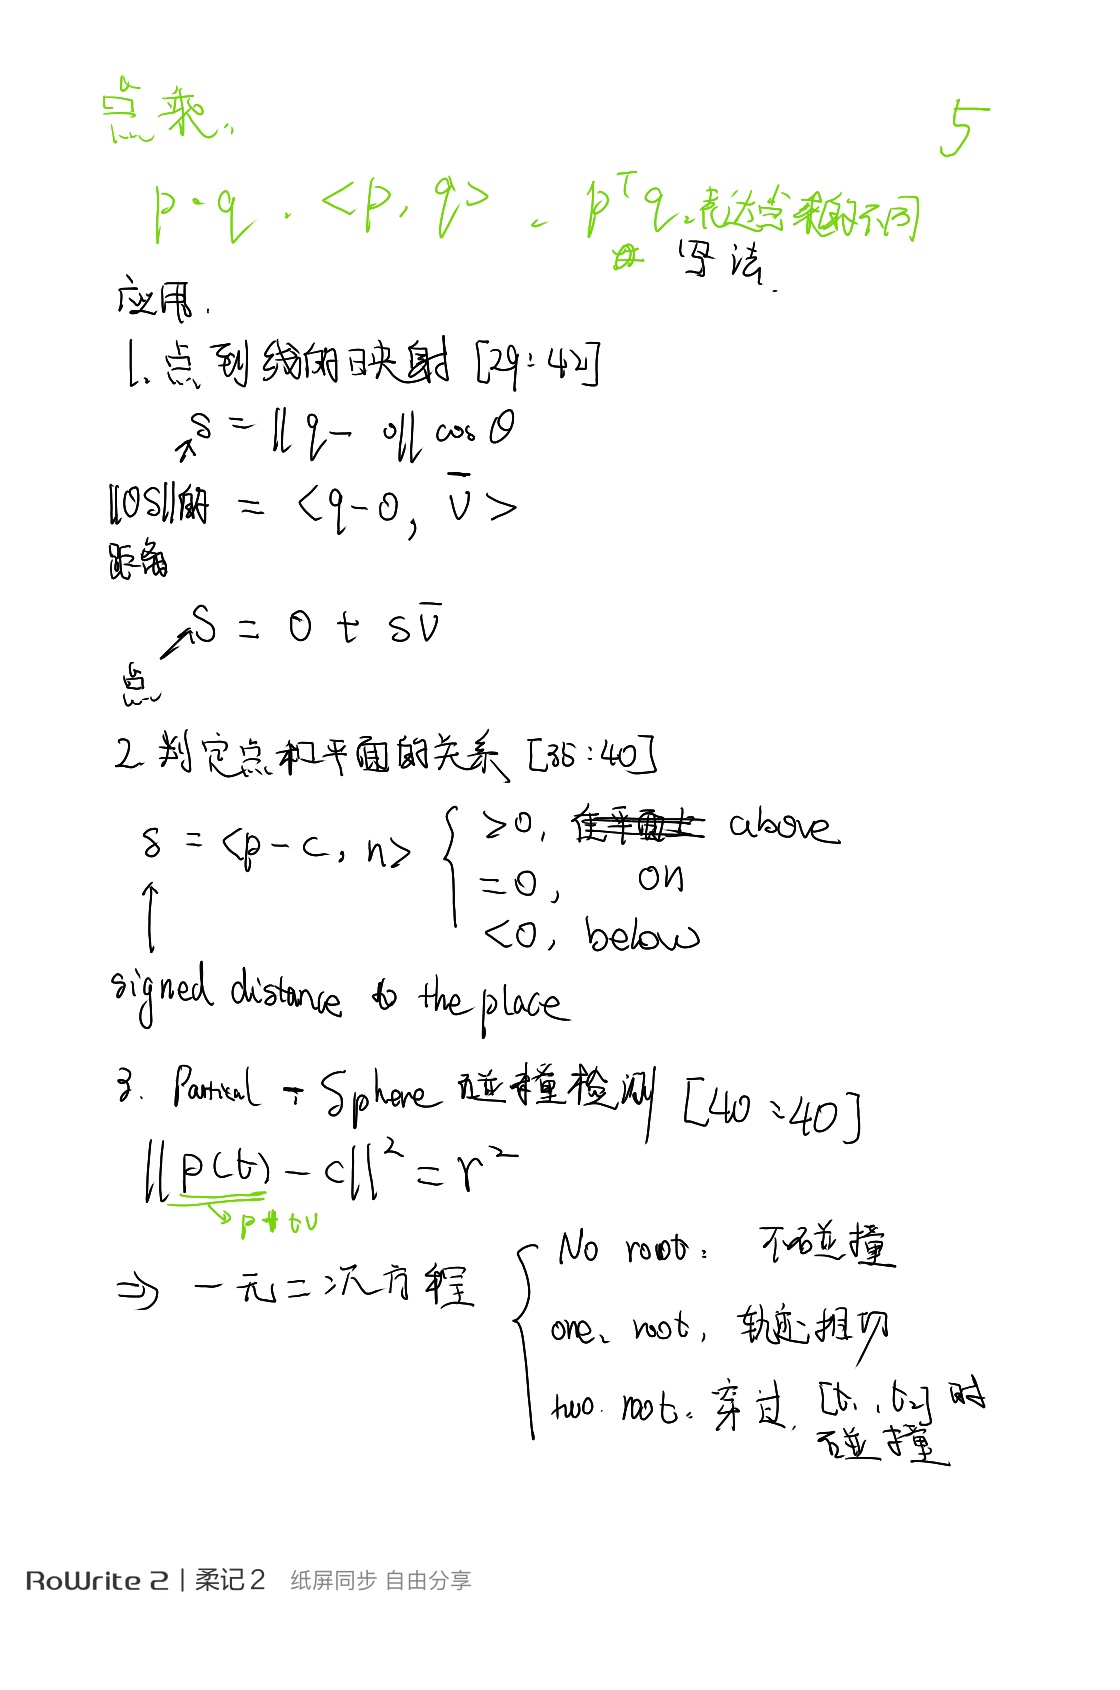 点乘. 5
p·q. <p, q>. pᵀq. 表达点乘的不同
写法.
应用.
1. 点到线的映射 [29:42]
s = ||q - o|| cos θ
||OS||的 = <q-o, v̅>
距离
S = o + sv̅
点
2. 判定点和平面的关系 [35:40]
s = <p-c, n> { ≥0, above
=0, on
<0, below
signed distance to the place
3. Partical - Sphere 碰撞检测 [40:40]
||p(t) - c||² = r²
p + tv
⇒ 一元二次方程 { No root: 不碰撞
one root, 轨迹相切
two root. 穿过. [t₁, t₂] 时
碰撞
RoWrite 2 | 柔记 2 纸屏同步 自由分享